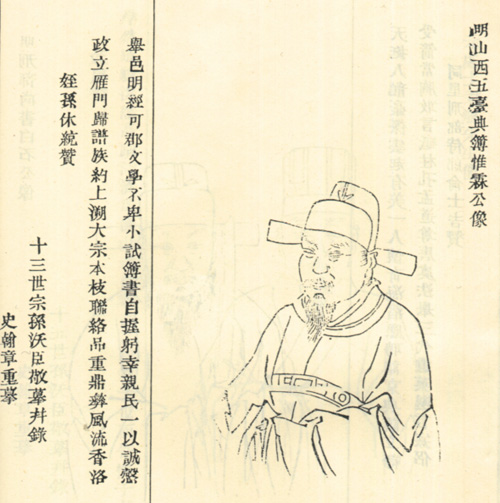 明山西五臺典簿惟霖公像
舉邑明經可郡文學不卑小試簿書自握躬幸親民一以誠慤
政立雁門歸譜族約上溯大宗本枝聯絡品重鼎彝風流香洛
姪孫休統贊
十三世宗孫沃臣敬摹幷錄
史翰章重摹